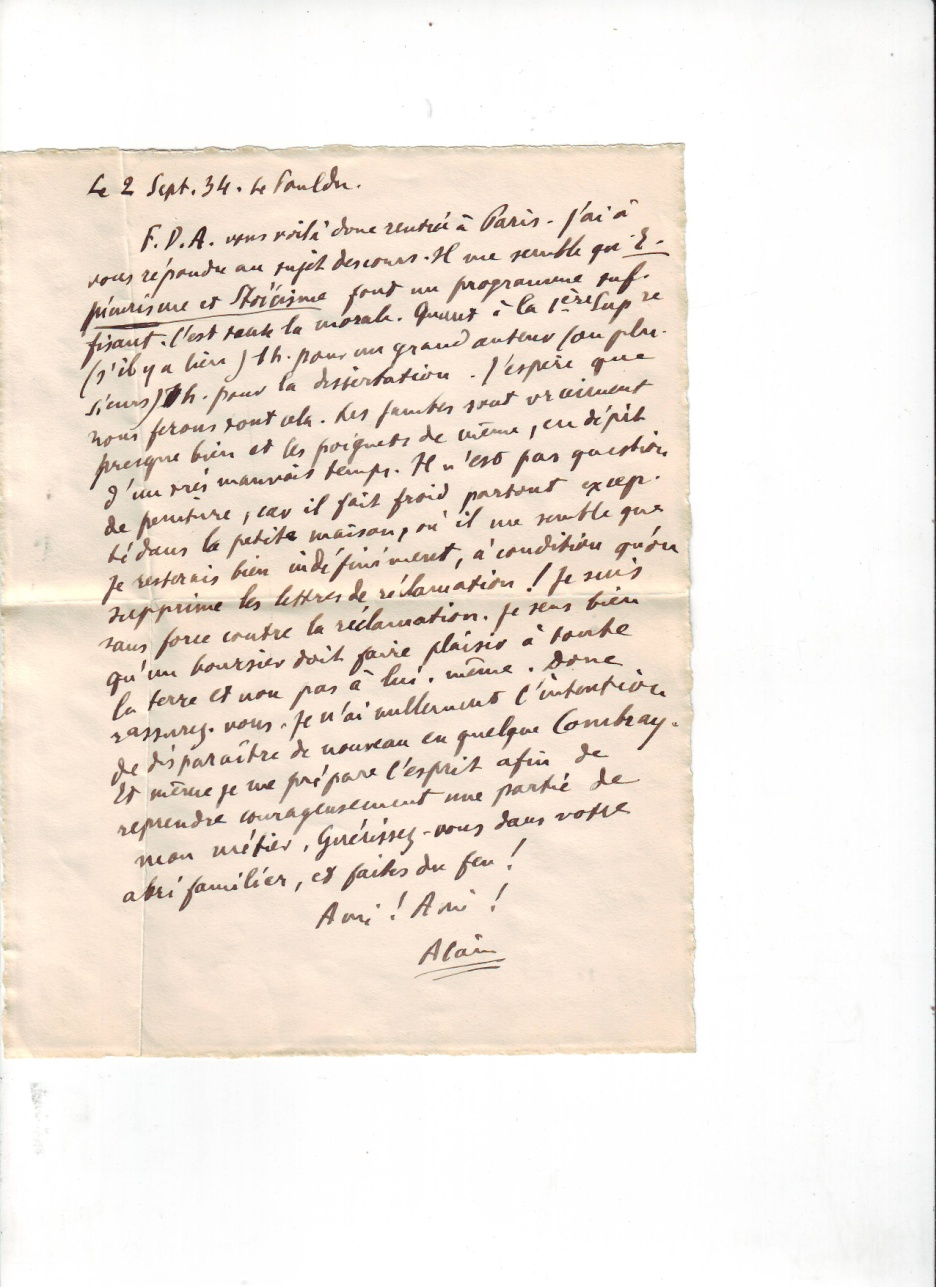 Le 2 Sept. 34. Le Pouldu.
F.D.A. vous voilà donc rentré à Paris. J'ai à
vous répondre au sujet des cours. Il me semble qu'E-
picurisme et Stoïcisme font un programme suf-
fisant. C'est toute la morale. Quant à la 1ère Supre
(s'il y a lieu) 1h. pour un grand auteur (ou plu-
sieurs) 1h. pour la dissertation. J'espère que
nous ferons tout cela. Les jambes sont vraiment
presque bien et les poignets de même, en dépit
d'un très mauvais temps. Il n'est pas question
de peinture, car il fait froid partout excep-
té dans la petite maison, où il me semble que
je resterais bien indéfiniment, à condition qu'on
supprime les lettres de réclamation ! Je suis
sans force contre la réclamation. Je sens bien
qu'un boursier doit faire plaisir à toute
la terre et non pas à lui-même. Donc
rassurez-vous. Je n'ai nullement l'intention
de disparaître de nouveau en quelque Combray.
Et même je me prépare l'esprit afin de
reprendre courageusement une partie de
mon métier. Guérissez-vous dans votre
abri familier, et faites du feu !
Ami ! Ami !
Alain